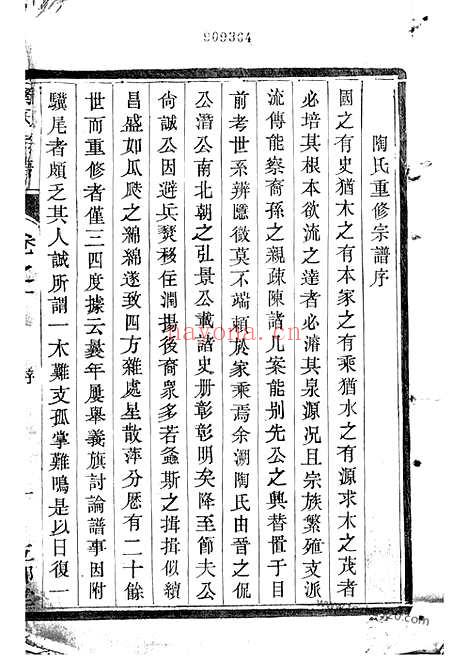 909364
陶氏重修宗譜序
國之有史猶木之有本家之有乘猶水之有源求木之茂者
必培其根本欲流之達者必濬其泉源况且宗族繁殖支派
流傳能察裔孫之親疎陳諸几案能别先公之興替置于目
前考世系辨隱微莫不端賴於家乘焉余溯陶氏由晉之侃
公潛公南北朝之弘景公載諸史册彰彰明矣降至節夫公
尚誠公因避兵燹移住澗塌後裔衆多若螽斯之揖揖似續
昌盛如瓜瓞之綿綿遂致四方雜處星散萍分歷有二十餘
世而重修者僅三四度據云曩年屢舉義旗討論譜事因附
驥尾者頗乏其人誠所謂一木難支孤掌難鳴是以日復一
序
一
hayona.com
www.2010Oldbook.com